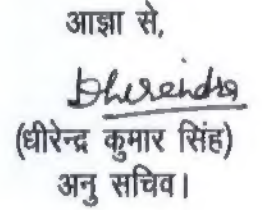 आज्ञा से,
Dhirendra
(धीरेन्द्र कुमार सिंह)
अनु सचिव।